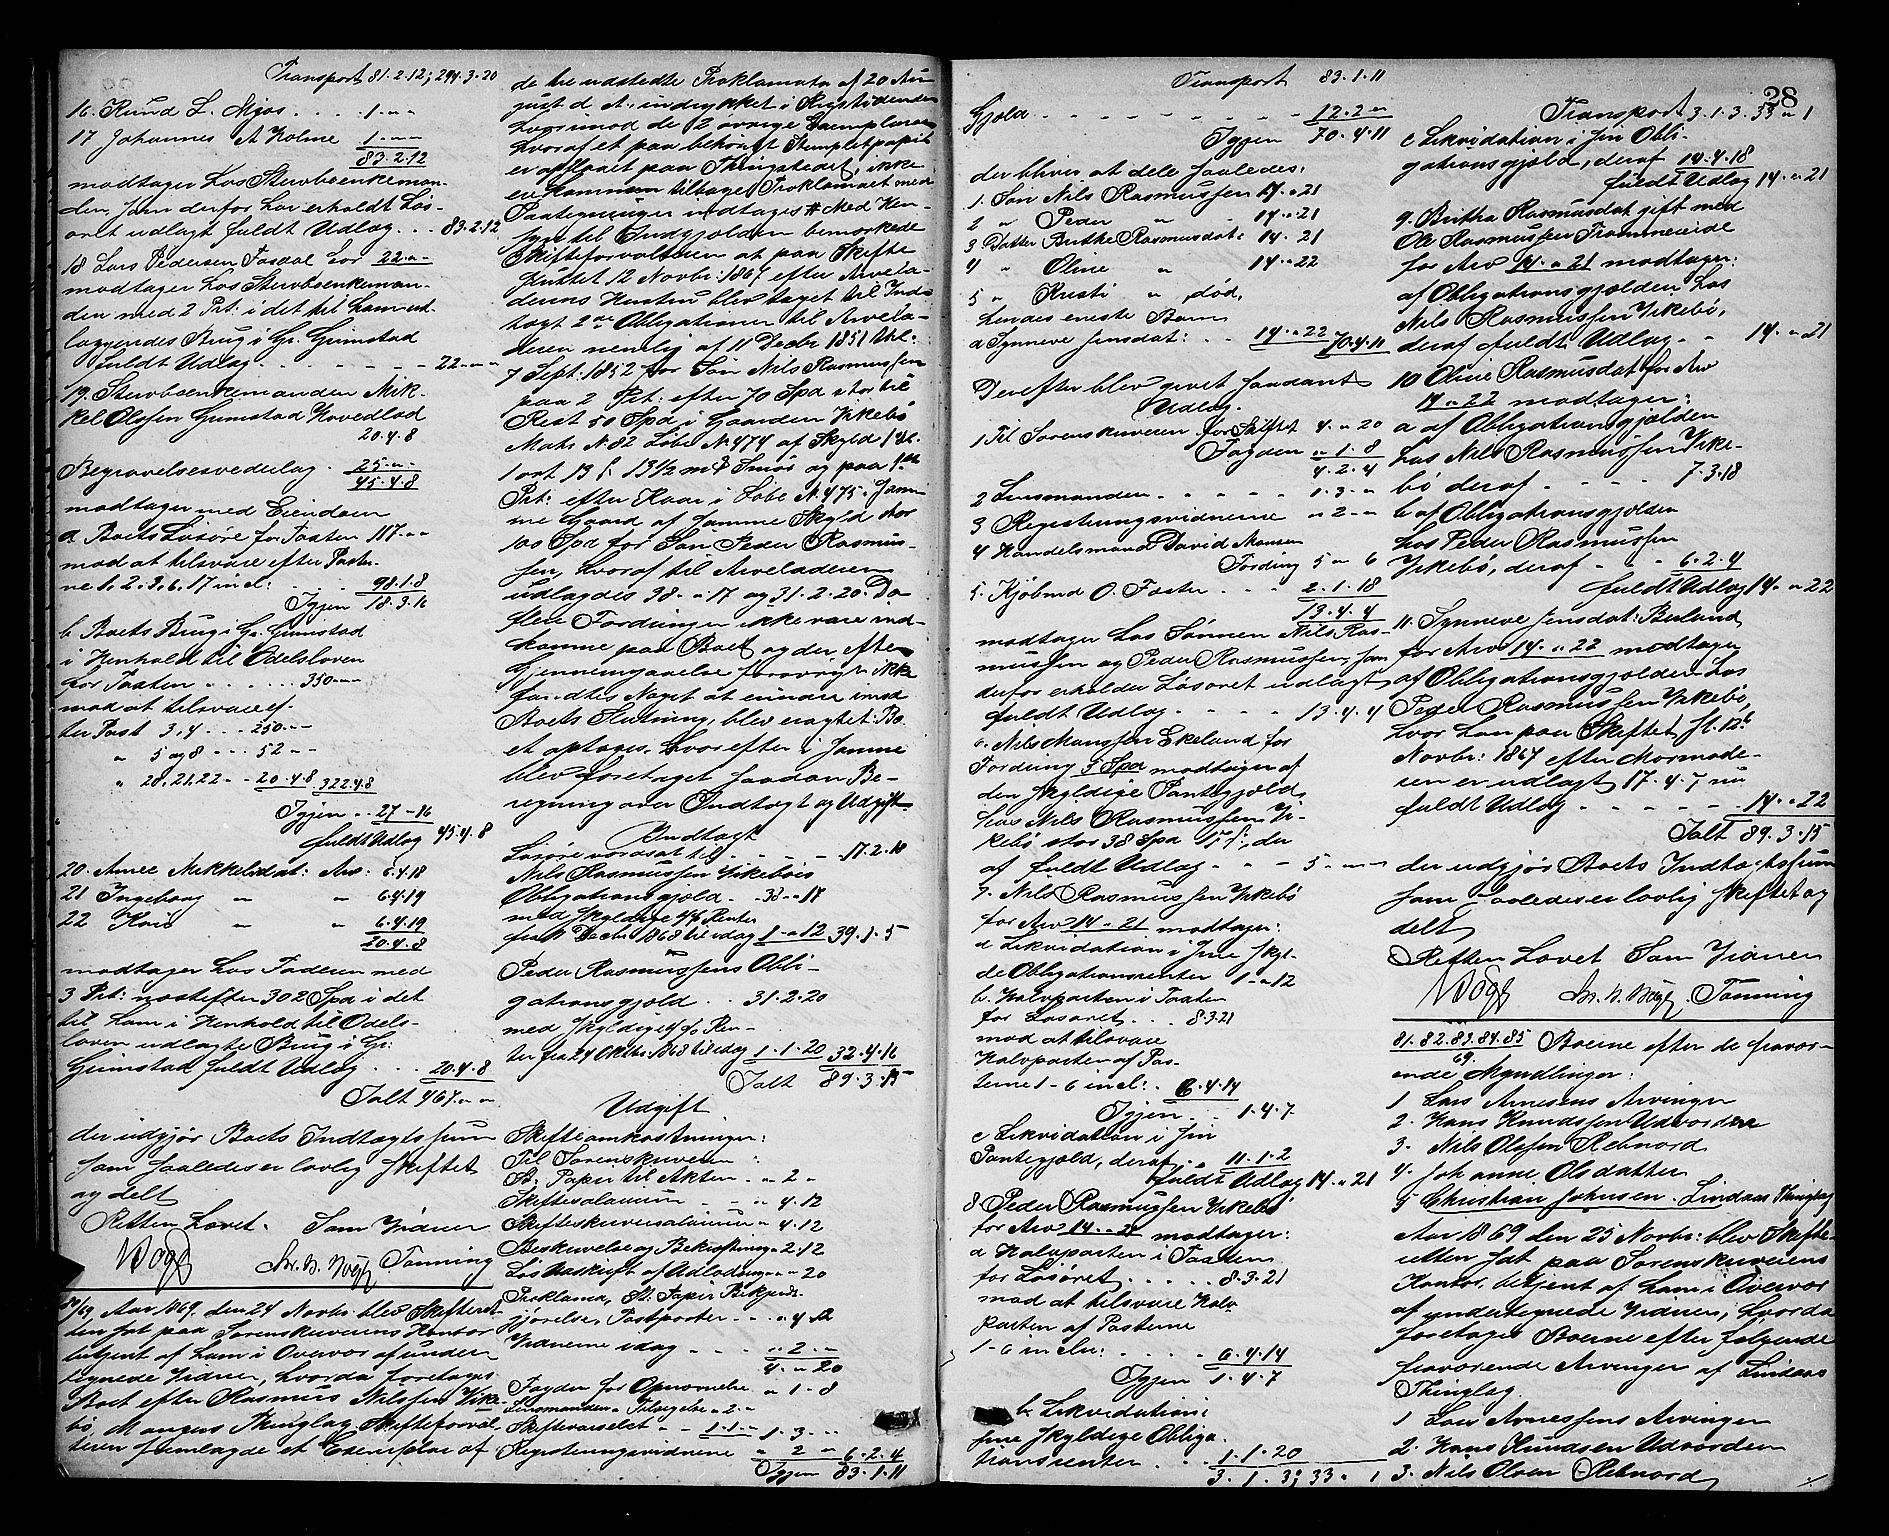 Transport 81.2.12; 294.3.20
16. Knud L. Mjøs . . . . 1 " "
17 Johannes A Holme 1 " "
83.2.12
modtager hos Stervboenkeman-
den, som derfor har erholdt Løs-
øret udlagt fuldt Udlæg . . 83.2.12
18 Lars Pedersen Fosdal for 22 " "
modtager hos Stervboenkeman-
den med 2 Prt: i det til ham ud-
læggendes Brug i Gr. Grimstad
fuldt Udlæg . . . . . 22 " "
19. Stervboenkemanden Mik-
kel Olsen Grimstad Hovedlod
20.4.8
Begravelsesvederlag . 25 " "
45.4.8
modtager med Eiendom
a. Boets Løsøre for Taxten 117 " "
mod at tilsvare efter Poster-
ne 1.2.3.6.17 incl: . 98.1.8
Igjen 18.3.16
b. Boets Brug i Gr. Grimstad
i Henhold til Odelsloven
for Taxten . . . . . 350 " "
mod at tilsvare ef-
ter Post 3.4 . . . 250 " "
" 5 og 8 . . . 52 " "
" 20.21.22 " " 20.4.8 322.4.8
Igjen . . 27 " 16
fuldt Udlæg 45.4.8
20. Anne Mikkelsdat: Arv: 6.4.18
21 Ingeborg " " 6.4.19
22 Kari " " 6.4.19
20.4.8
modtager hos Faderen med
3 Prt: næstefter 302 Spd i det
til ham i Henhold til Odels-
loven udlagte Brug i Gr:
Grimstad fuldt Udlæg . . . 20.4.8
Ialt 467 " "
der udgjør Boets Indtægtssum
som saaledes er lovlig skiftet
og delt
Retten hævet. Som Vidner
Tanning
Aar 1869. den 24 Novbr: blev Skifteret-
ten sat paa Sorenskriverens Kontor
betjent af ham i Overvær af under-
tegnede Vidner, hvorda foretoges
Boet efter Rasmus Nilssen Virke-
bø, Mangers Thinglag. Skifteforval-
teren fremlagde et Exemplar af
de tre udstedte Proklamata af 20 Au-
gust d. A., indrykket i Kristidenden
hvorimod de 2 øvrige Exemplarer
hvoraf et paa behørigt Stemplet papir
er opslaaet paa Thingstedet, ikke
ere kommen tilbage. Proklamaet med
Paategninger indtages # Med Hen-
syn til Indgjælden bemærkede
Skifteforvalteren at paa Skifte
sluttet 12 Novbr: 1867 efter Arvela-
derens Hustru blev taget til Ind-
tægt 2de Obligationer til Arvela-
deren nemlig af 11 Decbr 1851 thl:
7 Sept: 1852 for Søn Nils Rasmussen
paa 2 Prt: efter 70 Spd stor til
Rest 50 Spd i Gaarden Virkebø
Matr N. 82 Løbe N. 474 af Skyld 1 dl.
1 ort 13 ß. 13 1/2 m# Smør og paa 1ste
Prt: efter Kaar i Løbe N. 475. sam-
me Gaard af samme Skyld stor
100 Spd for Søn Peder Rasmus-
sen, hvoraf til Arveladeren
udlagdes 38 " 17 og 31.2.20. Da
flere Fordringer ikke vare ind-
komne paa Boet og der efter
Gjennemgaaelse forøvrigt ikke
fandtes Noget at erindre imod
Boets Slutning, blev eragtet: Bo-
et optages. hvorefter i samme
blev foretaget saadan Be-
regning over Indtægt og Udgift
Indtægt
Løsøre værdsat til . . . . . 17.2.18
Nils Rasmussen Virkebøs
Obligationsgjæld . . 38 " 17
med skyldige 4% Renter
fra 11 Decbr 1868 til idag 1 " 12 39.1.5
Peder Rasmussens Obli-
gationsgjæld . . 31.2.20
med skyldige 4% Ren-
ter fra 29 Oktbr. 1868 til idag 1.1.20 32.4.16
Ialt 89.3.15
Udgift
Skifteomkostninger:
Til Sorenskriveren:
St. Papir til Akten . . " 2 "
Skiftesalarium . . " 4.12
Skifteskriversalarium " 4.12
Beskrivelse og Bekræftning " 2.12
Løs Udskrift af Udlodning " " 20
Proklama, St: Papir Bekjendt-
gjørelse, Postporter . . " 4
Vidnerne idag . . . " 2 "
4 " 20
Sagden for Opnævnelse " 1.8
Lensmanden " Tilsigelse " 2 "
Skiftevarselet . . 1.1 " 1.3 "
Registreringsvidnerne " 2 " 6.2.4
Igjen 83.1.11
Transport 83.1.11
Gjæld . . . . . . . 12.2 "
Igjen 70.4.11
der bliver at dele saaledes:
1. Søn Nils Rasmussen 14 " 21
2 " Peder " " 14 " 21
3 Datter Brithe Rasmusdat: 14 " 21
4 " Oline " 14 " 22
5 " Kristi " død,
hendes eneste Barn
a Synneve Jensdat: . . 14 " 22 70.4.11
Derefter blev gjort saadant
Udlæg.
1 Til Sorenskriveren for Skiftet 4 " 20
Sagden " 1.8
4.2.4
2 Lensmanden . . . . . 1.3 "
3 Registreringsvidnerne " 2 "
4 Handelsmand David Monsen
Fordring 5 " 6
5. Kjøbmd O. Faster . . . 2.1.18
13.4.4
modtager hos Sønnen Nils Ras-
mussen og Peder Rasmussen, som
derfor erholder Løsøret udlagt
fuldt Udlæg . . . . . 13.4.4
6. Nils Monssen Ekeland for
Fordring 5 Spd modtager af
den skyldige Pantegjæld
hos Nils Rasmussen Vi-
kebø stor 38 Spd 17 ß:, der
af fuldt Udlæg . . . 5 " "
7. Nils Rasmussen Virkebø
for Arv 14 " 21 modtager:
a Likvidation i sine skyl-
de Obligationsrenter 1 " 12
b. Halvparten i Taxten
for Løsøret . . . 8.3.21
mod at tilsvare
Halvparten af Pos-
terne 1-6 incl: . 6.4.14
Igjen . . 1.4.7
c Likvidation i sin
Pantegjæld, deraf . . 11.1.2
fuldt Udlæg 14 " 21
8 Peder Rasmussen Virkebø
for Arv 14 " 21 modtager:
a Halvparten i Taxten
for Løsøret . . . . . 8.3.21
mod at tilsvare Halv
parten af Posterne
1-6 incl: . . . . . 6.4.14
Igjen 1.4.7
b. Likvidation i
sine skyldige Obliga-
tionsrenter . . . 1.1.20
3.1.3; 33 " 1
28
Transport 3.1.3. 33 " 1
c Likvidation i sin Obli-
gationsgjæld, deraf 14.4.18
fuldt Udlæg 14 " 21
9. Britha Rasmusdat gift med
Ole Rasmussen Frammereide
for Arv 14 " 21 modtager:
af Obligationsgjælden hos
Nils Rasmussen Virkebø,
deraf fuldt Udlæg . . 14 " 21
10 Oline Rasmusdat for Arv
14 " 22 modtager:
a af Obligationsgjælden
hos Nils Rasmussen Virke-
bø deraf . . . . 7.3.18
b af Obligationsgjælden
hos Peder Rasmussen
Virkebø, deraf . . . 6.2.4
fuldt Udlæg 14 " 22
11. Synneve Jensdat: Berland
for Arv 14 " 22 modtager
af Obligationsgjælden hos
Peder Rasmussen Virkebø,
hvor han paa Skiftet sl. 12te
Novbr: 1867 efter Mormode-
ren er udlagt 17.4.7 nu
fuldt Udlæg . . . . . 14 " 22
Ialt 89.3.15
der udgjør Boets Indtægtssum
som saaledes er lovlig skiftet og
delt
Retten hævet Som Vidner
Tanning
81.82.83.84.85 Boerne efter de fravær-
69
ende Myndlinger:
1 Lars Arnesens Arvinger
2. Hans Knudssen Udvordene
3. Nils Olssen Rebnord
4. Johanne Olsdatter
5 Christian Johnsen. Lindaas Thinglag
Aar 1869 den 25 Novbr: blev Skifte-
retten sat paa Sorenskriverens
Kontor, betjent af ham i Overvær
af undertegnede Vidner, hvorda
foretoges Boerne efter følgende
fraværende Arvinger af Lindaas
Thinglag.
1 Lars Arnessens Arvinger
2. Hans Knudsen Udvorden
3. Nils Olsen Rebnord